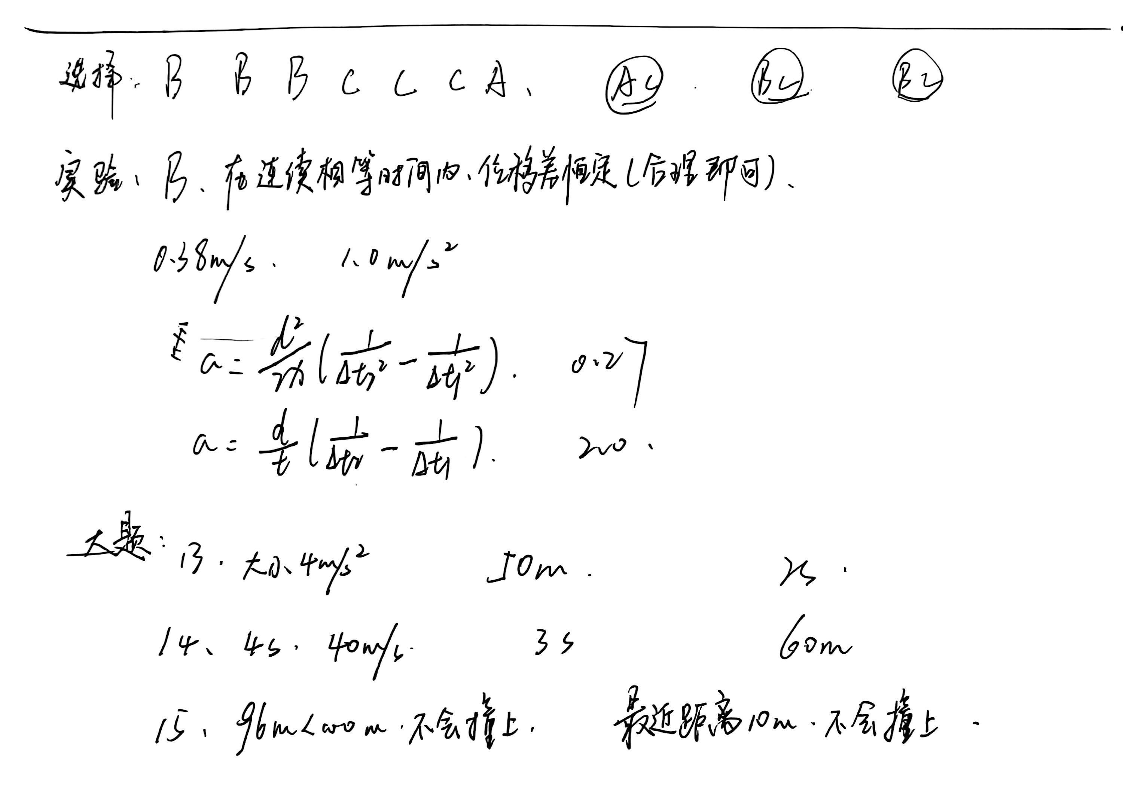 选择: B B B C C C A、 AC . BC BC
实验、B、在连续相等时间内、位移差恒定(合理即可)、
0.38m/s. 1.0m/s²
a = d²/2x (1/Δt₂² - 1/Δt₁²). 0.27
a = d/t (1/Δt₂ - 1/Δt₁). 2.0.
大题: 13. 大小4m/s² 50m. 2s.
14、4s. 40m/s. 3s 60m
15、96m<100m.不会撞上. 最近距离10m.不会撞上.